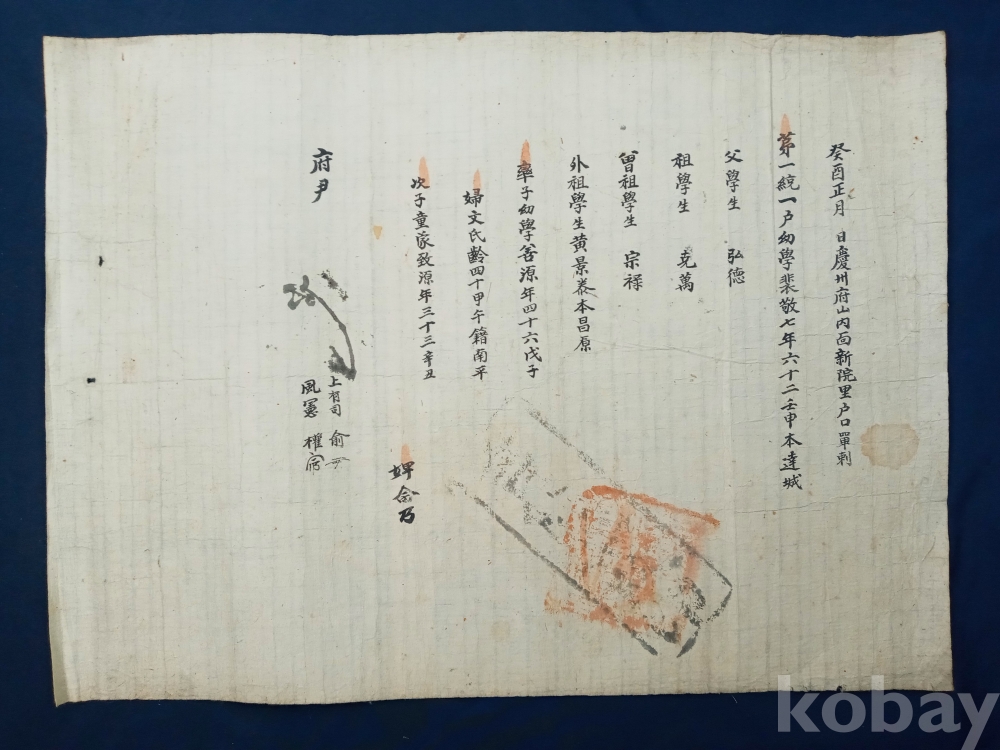 癸酉正月 日慶州府山内面新院里戶口單剌
第一統一戶幼學裴敬七年六十二壬申本達城
父學生 弘德
祖學生 克萬
曾祖學生 宗祿
外祖學生黃景泰本昌原
率子幼學善源年四十六戊子
婦文氏齡四十甲午籍南平
次子童蒙致源年三十三辛丑
婢念乃
府尹
上有司 俞
風憲 權
kobay